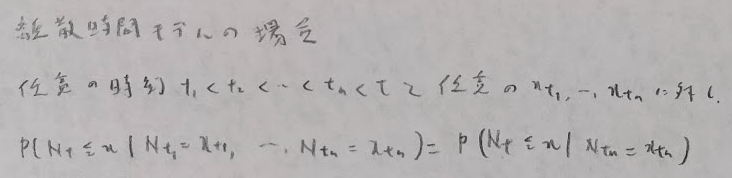 離散時間モデルの場合
任意の時刻 t₁ < t₂ < … < tₙ < t と 任意の x_{t₁}, …, x_{tₙ} に対し、
P(N_t ≤ x | N_{t₁} = x_{t₁}, …, N_{tₙ} = x_{tₙ}) = P(N_t ≤ x | N_{tₙ} = x_{tₙ})